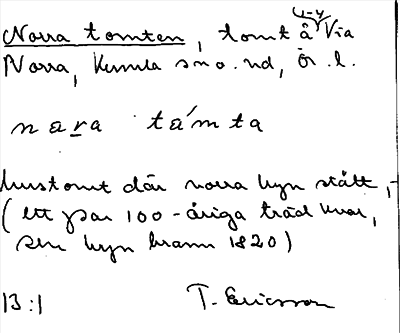 1-4
Norra tomten, tomt å Via
Norra, Kumla sn o. hd, Ör. l.
nara támta
hustomt där norra byn stått,
(ett par 100-åriga träd kvar,
sen byn brann 1820)
13:1 T. Ericsson